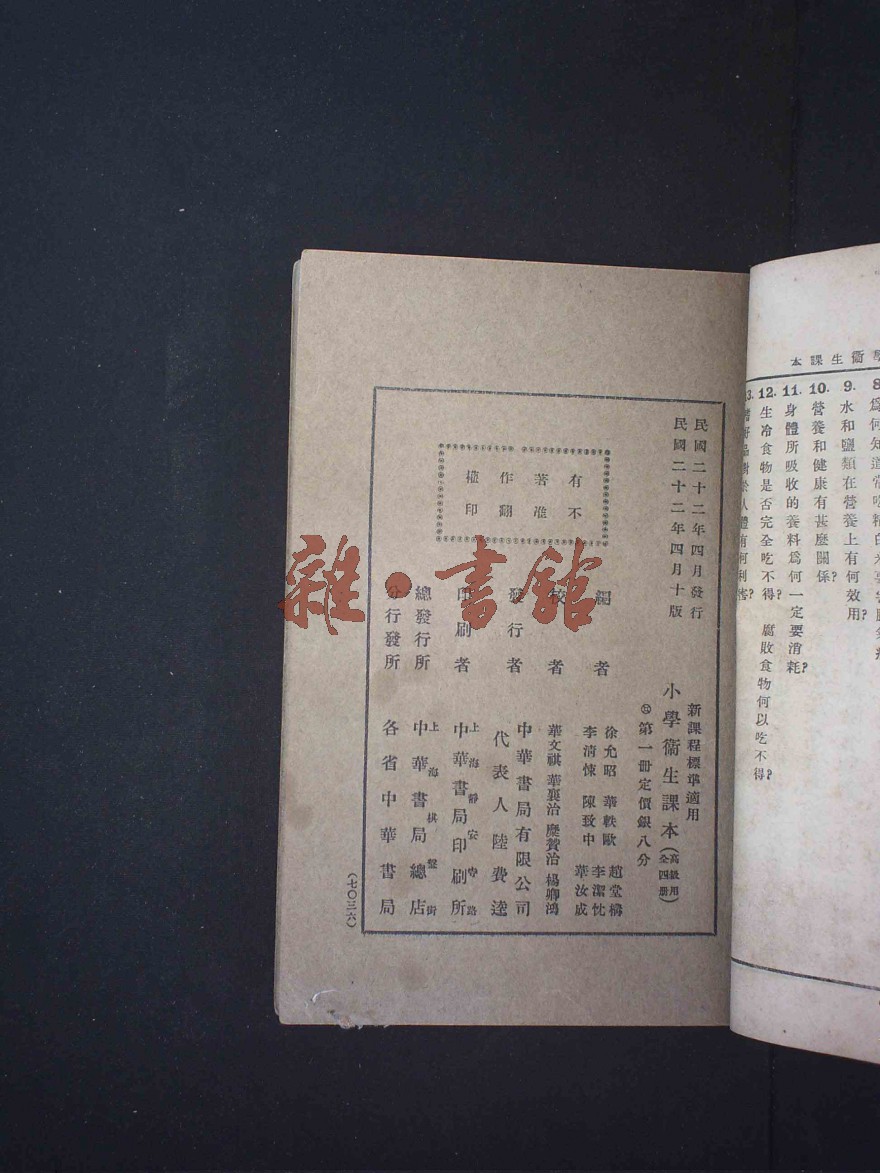 學衞生課本
8.
9. 水和鹽類在營養上有何效用?
10. 營養和健康有甚麼關係?
11. 身體所吸收的養料爲何一定要消耗?
12. 生冷食物是否完全吃不得? 腐敗食物何以吃不得?
民國二十二年四月發行
民國二十二年四月十版
有著作權
不准翻印
新課程標準適用
小學衞生課本(高級用全四册)
第一册定價銀八分
編者
徐允昭 華軼歐 趙堂構
李清悚 陳致中 李潔忱 華汝成
校者
華文祺 華襄治 糜贊治 楊卿鴻
發行者
中華書局有限公司
代表人 陸費逵
印刷者
上海靜安寺路
中華書局印刷所
總發行所
上海棋盤街
中華書局總店
分行發所
各省中華書局
(七〇三六)
雜·書館